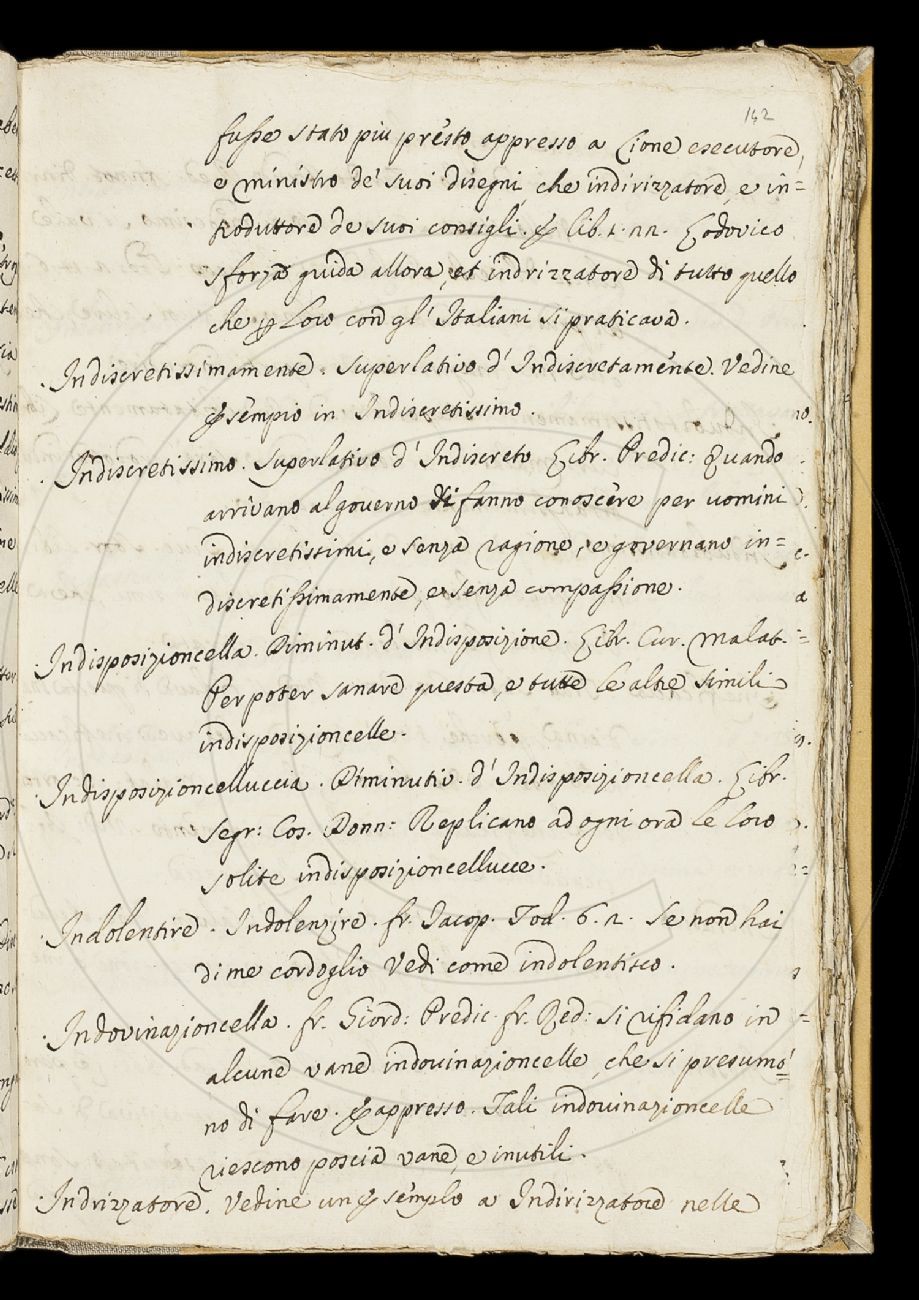 142
fusse stato piu presto appresso a Cione esecutore,
e ministro de' suoi disegni, che indirizzatore, e in=
troduttore de suoi consigli. E lib. 1. nn. Lodovico
sforza guida allora, et indrizzatore di tutto quello
che Loro con gl' Italiani si praticava.
Indiscretissimamente. Superlativo d' Indiscretamente. Vedine
esempio in Indiscretissimo.
Indiscretissimo. Superlativo d' Indiscreto Libr. Predic: Quando
arrivano al governo si fanno conoscere per uomini
indiscretissimi, e senza ragione, e governano in=
discretissimamente, e senza compassione.
Indisposizioncella. Diminut. d' Indisposizione. Libr. Cur. malat.
Per poter sanare questa, e tutte le altre simili
indisposizioncelle.
Indisposizioncelluccia. Diminutiv. d' Indisposizioncella. Libr.
segr: Cos. Donn: Replicano ad ogni ora le loro
solite indisposizioncellucce.
Indolentire. Indolenzire. fr. Jacop. Tod. 6. n. Se non hai
di me cordoglio Vedi come indolentisco.
Indovinazioncella. fr. Giord: Predic. fr. Red: si rifidano in
alcune vane indovinazioncelle, che si presumo=
no di fare. E appresso. Tali indovinazioncelle
riescono poscia vane, e inutili.
Indrizzatore. Vedine un esemplo a Indirizzatore nelle